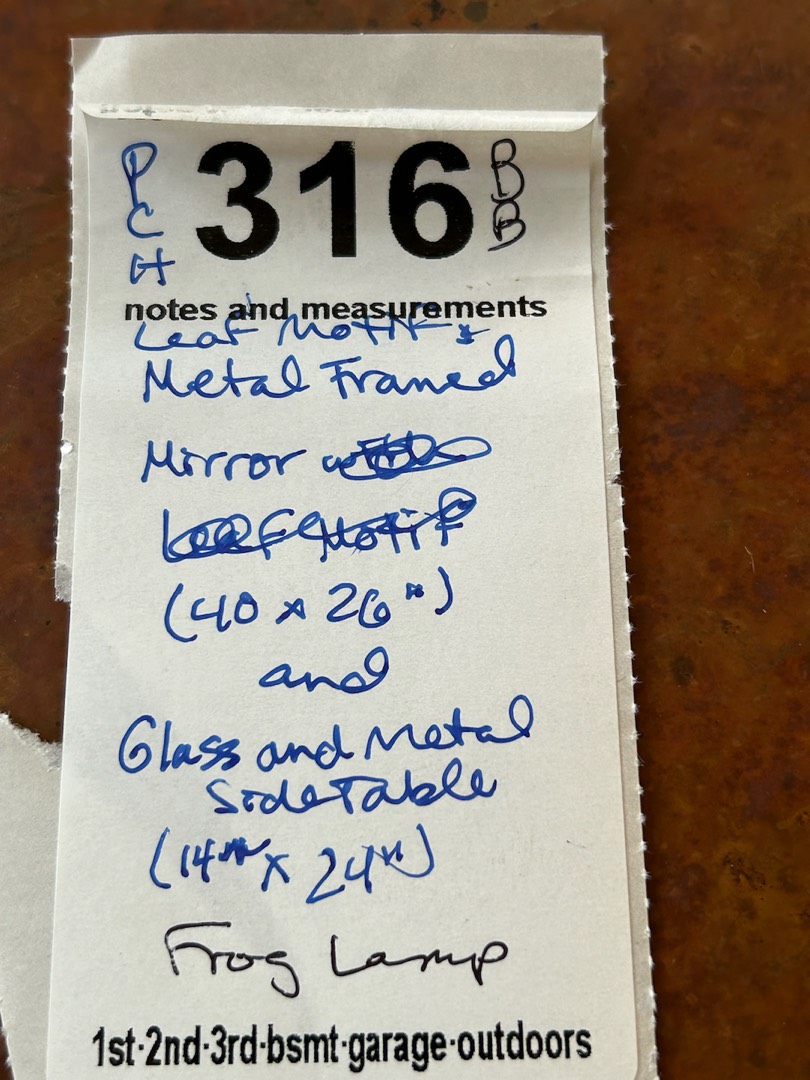 P
C
H
316
B
B
notes and measurements
Leaf Motif &
Metal Framed
Mirror with
Leaf Motif
(40 x 26")
and
Glass and Metal
Side Table
(14" x 24")
Frog Lamp
1st·2nd·3rd·bsmt·garage·outdoors